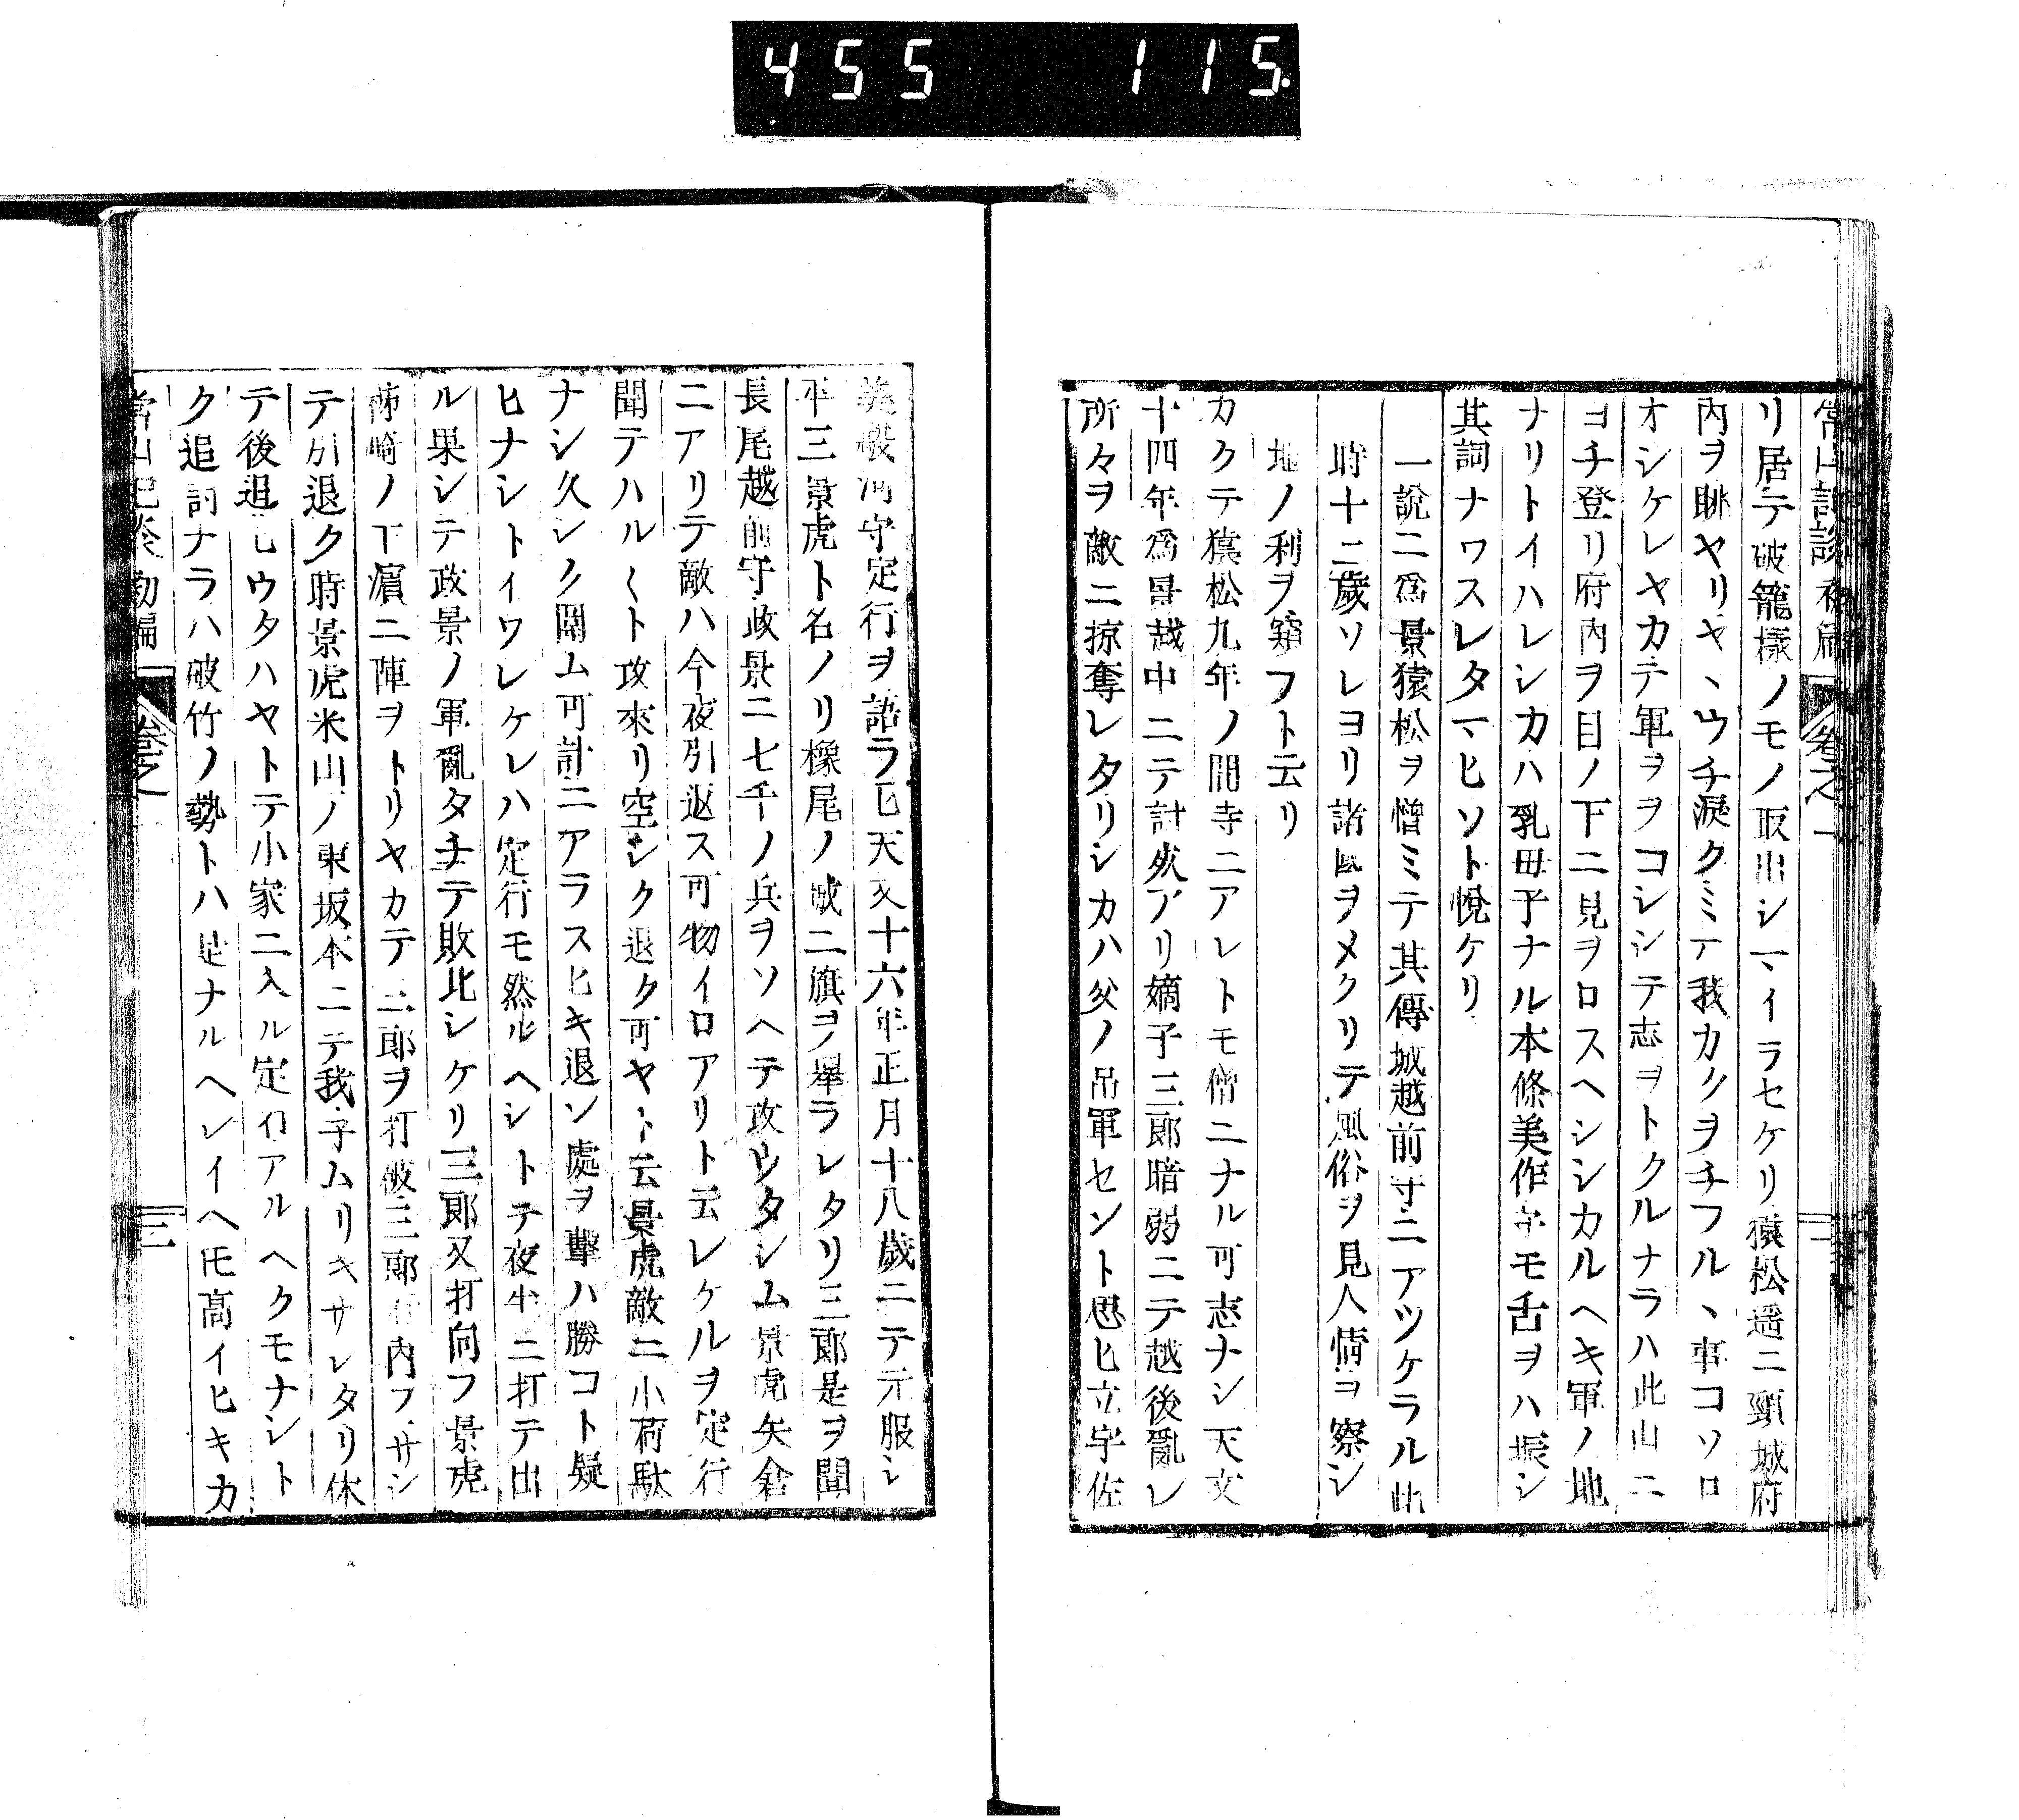 455 115.
常山記談初編 卷之一 二
リ居テ破籠樣ノモノ取出シマイラセケリ猿松遥ニ頸城府
内ヲ眺ヤリヤヽウチ淚クミテ我カクヲチフルヽ事コソロ
オシケレヤカテ軍ヲヲコシシテ志ヲトクルナラハ此山ニ
ヨチ登リ府内ヲ目ノ下ニ見ヲロスヘシシカルヘキ軍ノ地
ナリトイハレシカハ乳母子ナル本條美作守モ舌ヲハ振シ
其詞ナワスレタマヒソト悅ケリ
一說ニ爲景猿松ヲ憎ミテ其傳城越前守ニアツケラル此
時十二歲ソレヨリ諸國ヲメクリテ風俗ヲ見人情ヲ察シ
地ノ利ヲ窺フト云リ
カクテ猿松九年ノ間寺ニアレトモ僧ニナル可志ナシ天文
十四年爲景越中ニテ討死アリ嫡子三郎暗弱ニテ越後亂レ
所々ヲ敵ニ掠奪レタリシカハ父ノ吊軍セント思ヒ立宇佐
美駿河守定行ヲ語ラヒ天文十六年正月十八歲ニテ元服シ
平三景虎ト名ノリ橡尾ノ城ニ旗ヲ擧ラレタリ三郎是ヲ聞
長尾越前守政景ニ七千ノ兵ヲソヘテ攻シタシム景虎矢倉
ニアリテ敵ハ今夜引返ス可物イロアリト云レケルヲ定行
聞テハル〱ト攻來リ空シク退ク可ヤト云景虎敵ニ小荷駄
ナシ久シク圍ム可計ニアラスヒキ退ン處ヲ擊ハ勝コト疑
ヒナシトイワレケレハ定行モ然ルヘシトテ夜半ニ打テ出
ル果シテ政景ノ軍亂タチテ敗北シケリ三郎又打向フ景虎
柿崎ノ下濱ニ陣ヲトリヤカテ三郎ヲ打破三郎府内フサシ
テ引退ク時景虎米山ノ東坂本ニテ我子ムリキサレタリ休
テ後追ヒウタハヤトテ小家ニ入ル定行アルヘクモナシト
ク追討ナラハ破竹ノ勢トハ是ナルヘシイヘ𪜈高イヒキカ
常山記談初編 卷之一 三